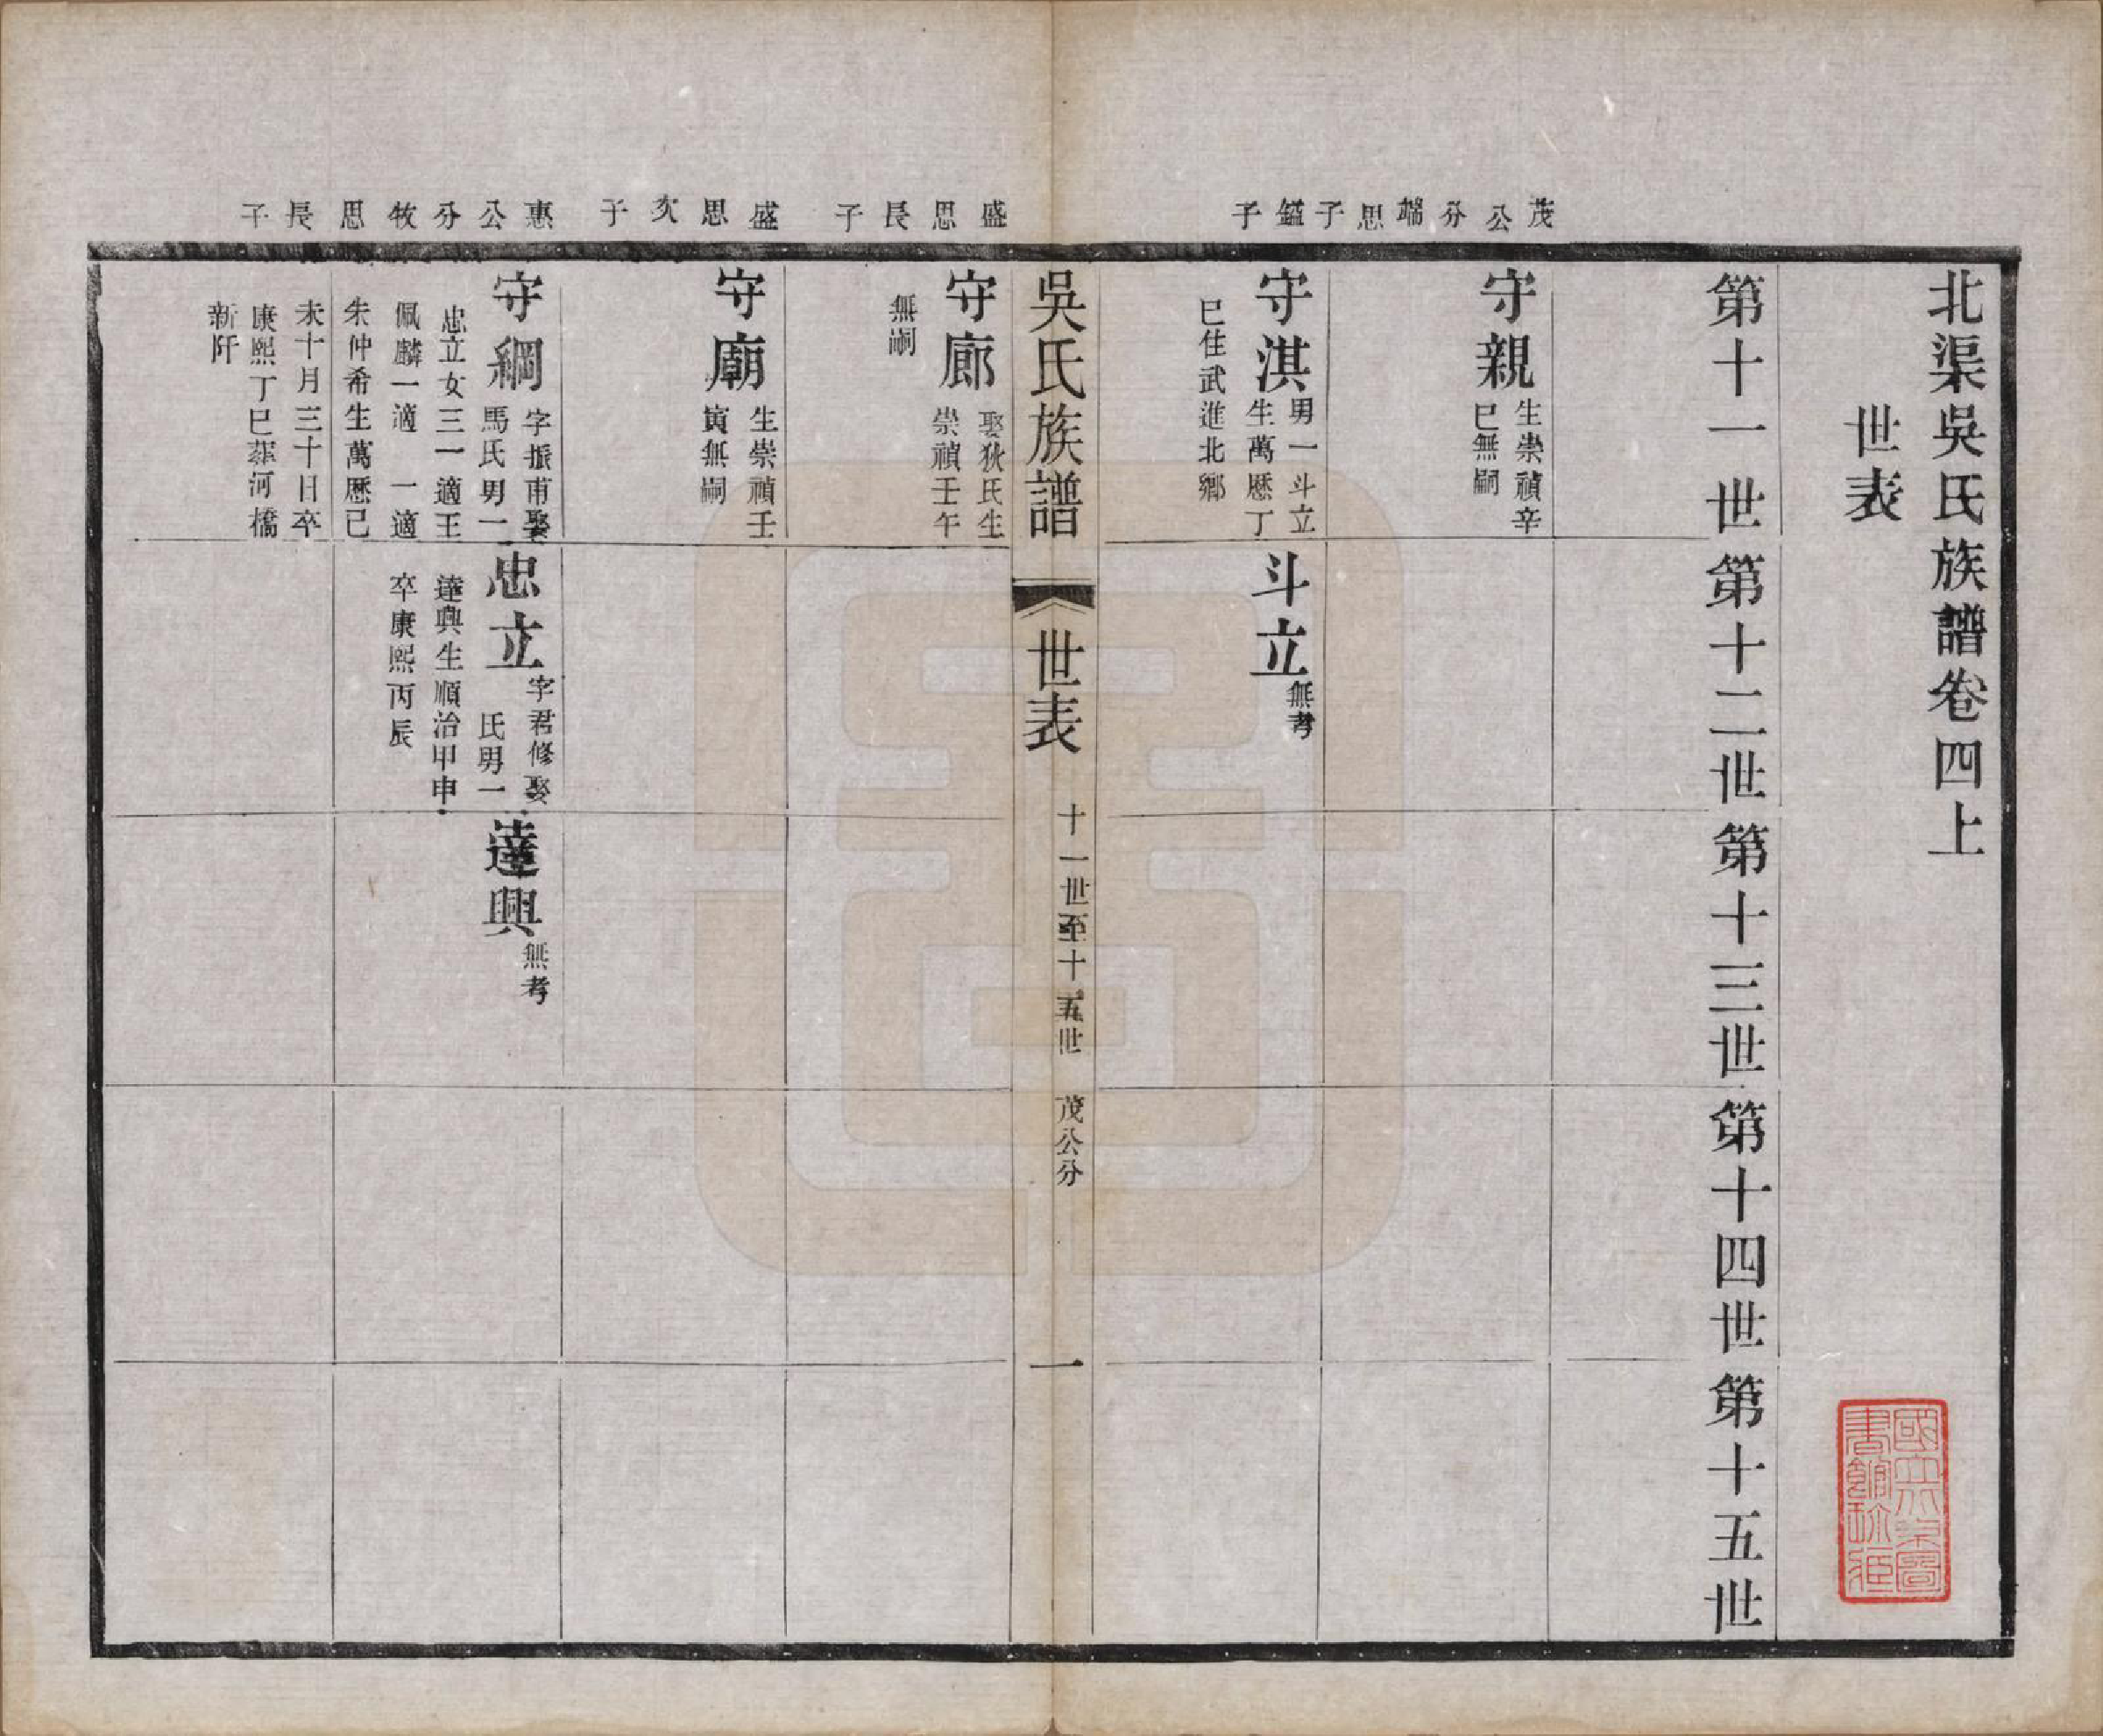 北渠吳氏族譜卷四上
世表
第十一世
第十二世
第十三世
第十四世
第十五世
茂公分端思子
守親
生崇禎辛
巳無嗣
鎰子
守淇
男一斗立
生萬歷丁
巳住武進北鄉
斗立
無考
吳氏族譜
世表
十一世至十五世
茂公分
一
盛思長子
守廊
娶狄氏生
崇禎壬午
無嗣
盛思次子
守廟
生崇禎壬
寅無嗣
惠公分牧思長子
守綱
字振甫娶
馬氏男一
忠立女三一適王
佩麟一適 一適
朱仲希生萬歷己
未十月三十日卒
康熙丁巳葬河橋
新阡
忠立
字君修娶
氏男一
達興生順治甲申
卒康熙丙辰
達興
無考
國立北平圖
書館珍藏